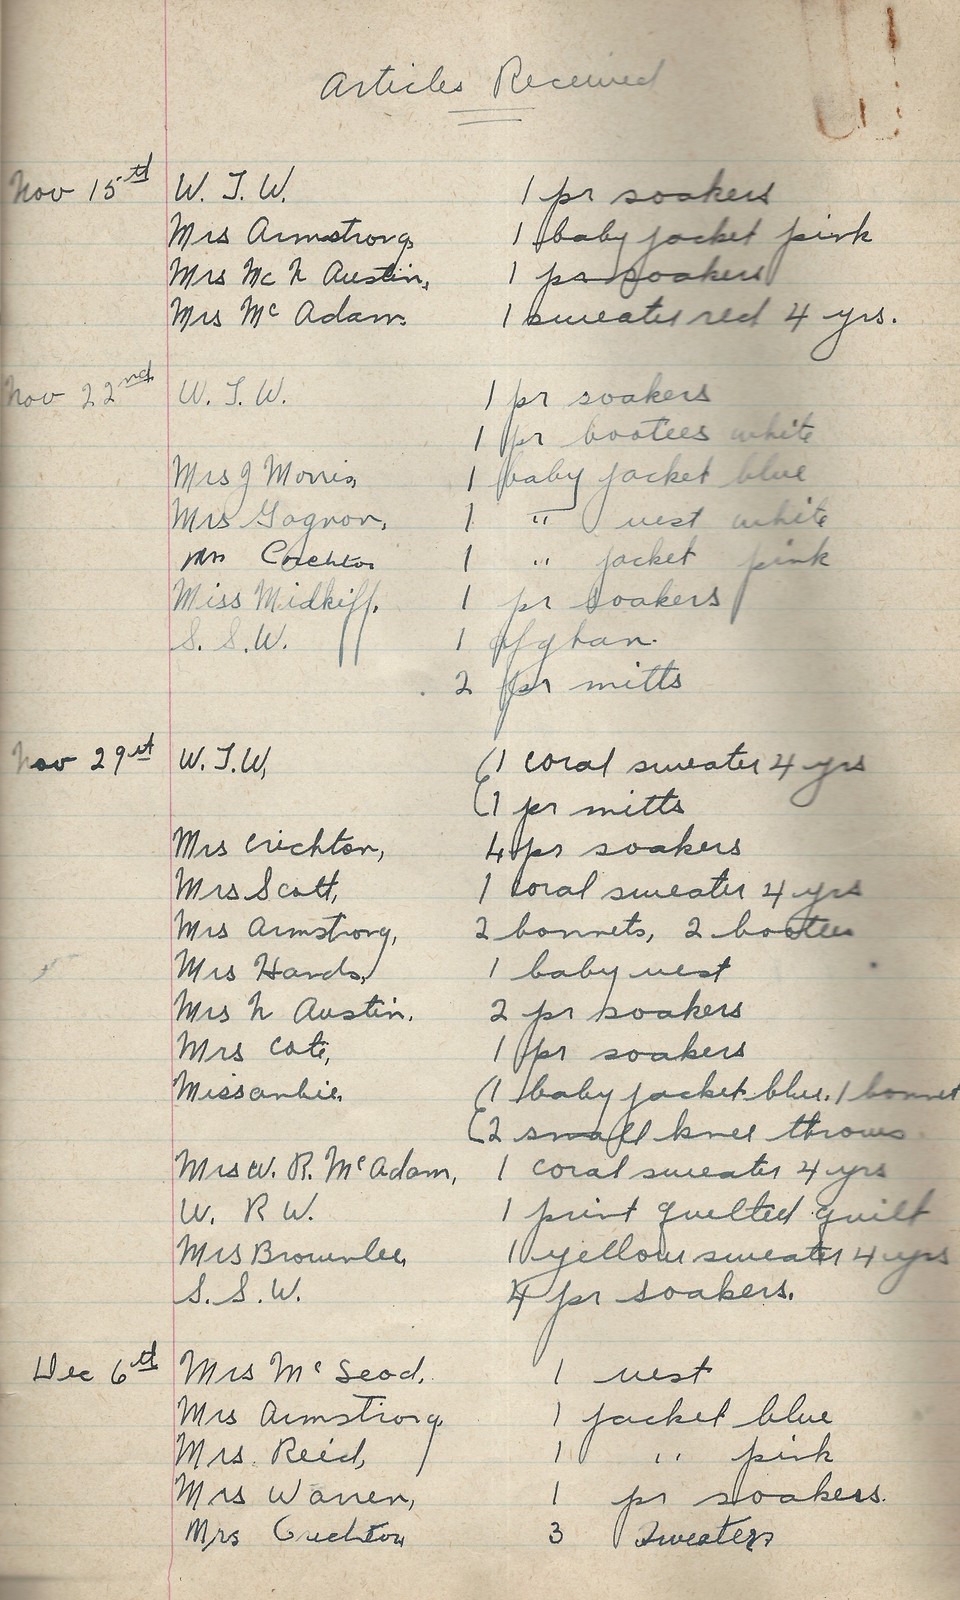 Articles Received
Nov 15th W. T. W. 1 pr soakers
Mrs Armstrong 1 baby jacket pink
Mrs Mc N Austin, 1 pr soakers
Mrs Mc Adam. 1 sweater red 4 yrs.
Nov 22nd W. T. W. 1 pr soakers
1 pr bootees white
Mrs J Morris, 1 baby jacket blue
Mrs Gagnon, 1 " vest white
Mrs Crichton 1 " jacket pink
Miss Midkiff. 1 pr soakers
S. S. W. 1 afghan.
2 pr mitts
Nov 29st W. T. W, (1 coral sweater 4 yrs
(1 pr mitts
Mrs Crichton, 4 pr soakers
Mrs Scott, 1 coral sweater 4 yrs
Mrs Armstrong, 2 bonnets, 2 bootees
Mrs Hands, 1 baby vest
Mrs N Austin. 2 pr soakers
Mrs Cote, 1 pr soakers
Miss (1 baby jacket blue. 1 bonnet
(2 small knee throws
Mrs W. R. Mc Adam, 1 coral sweater 4 yrs
W. R W. 1 print quilted quilt
Mrs Brownlee, 1 yellow sweater 4 yrs
S. S. W. 4 pr soakers.
Dec 6th Mrs Mc Leod, 1 vest
Mrs Armstrong 1 jacket blue
Mrs. Reid, 1 " pink
Mrs Warren, 1 pr soakers.
Mrs Crichton 3 Sweaters